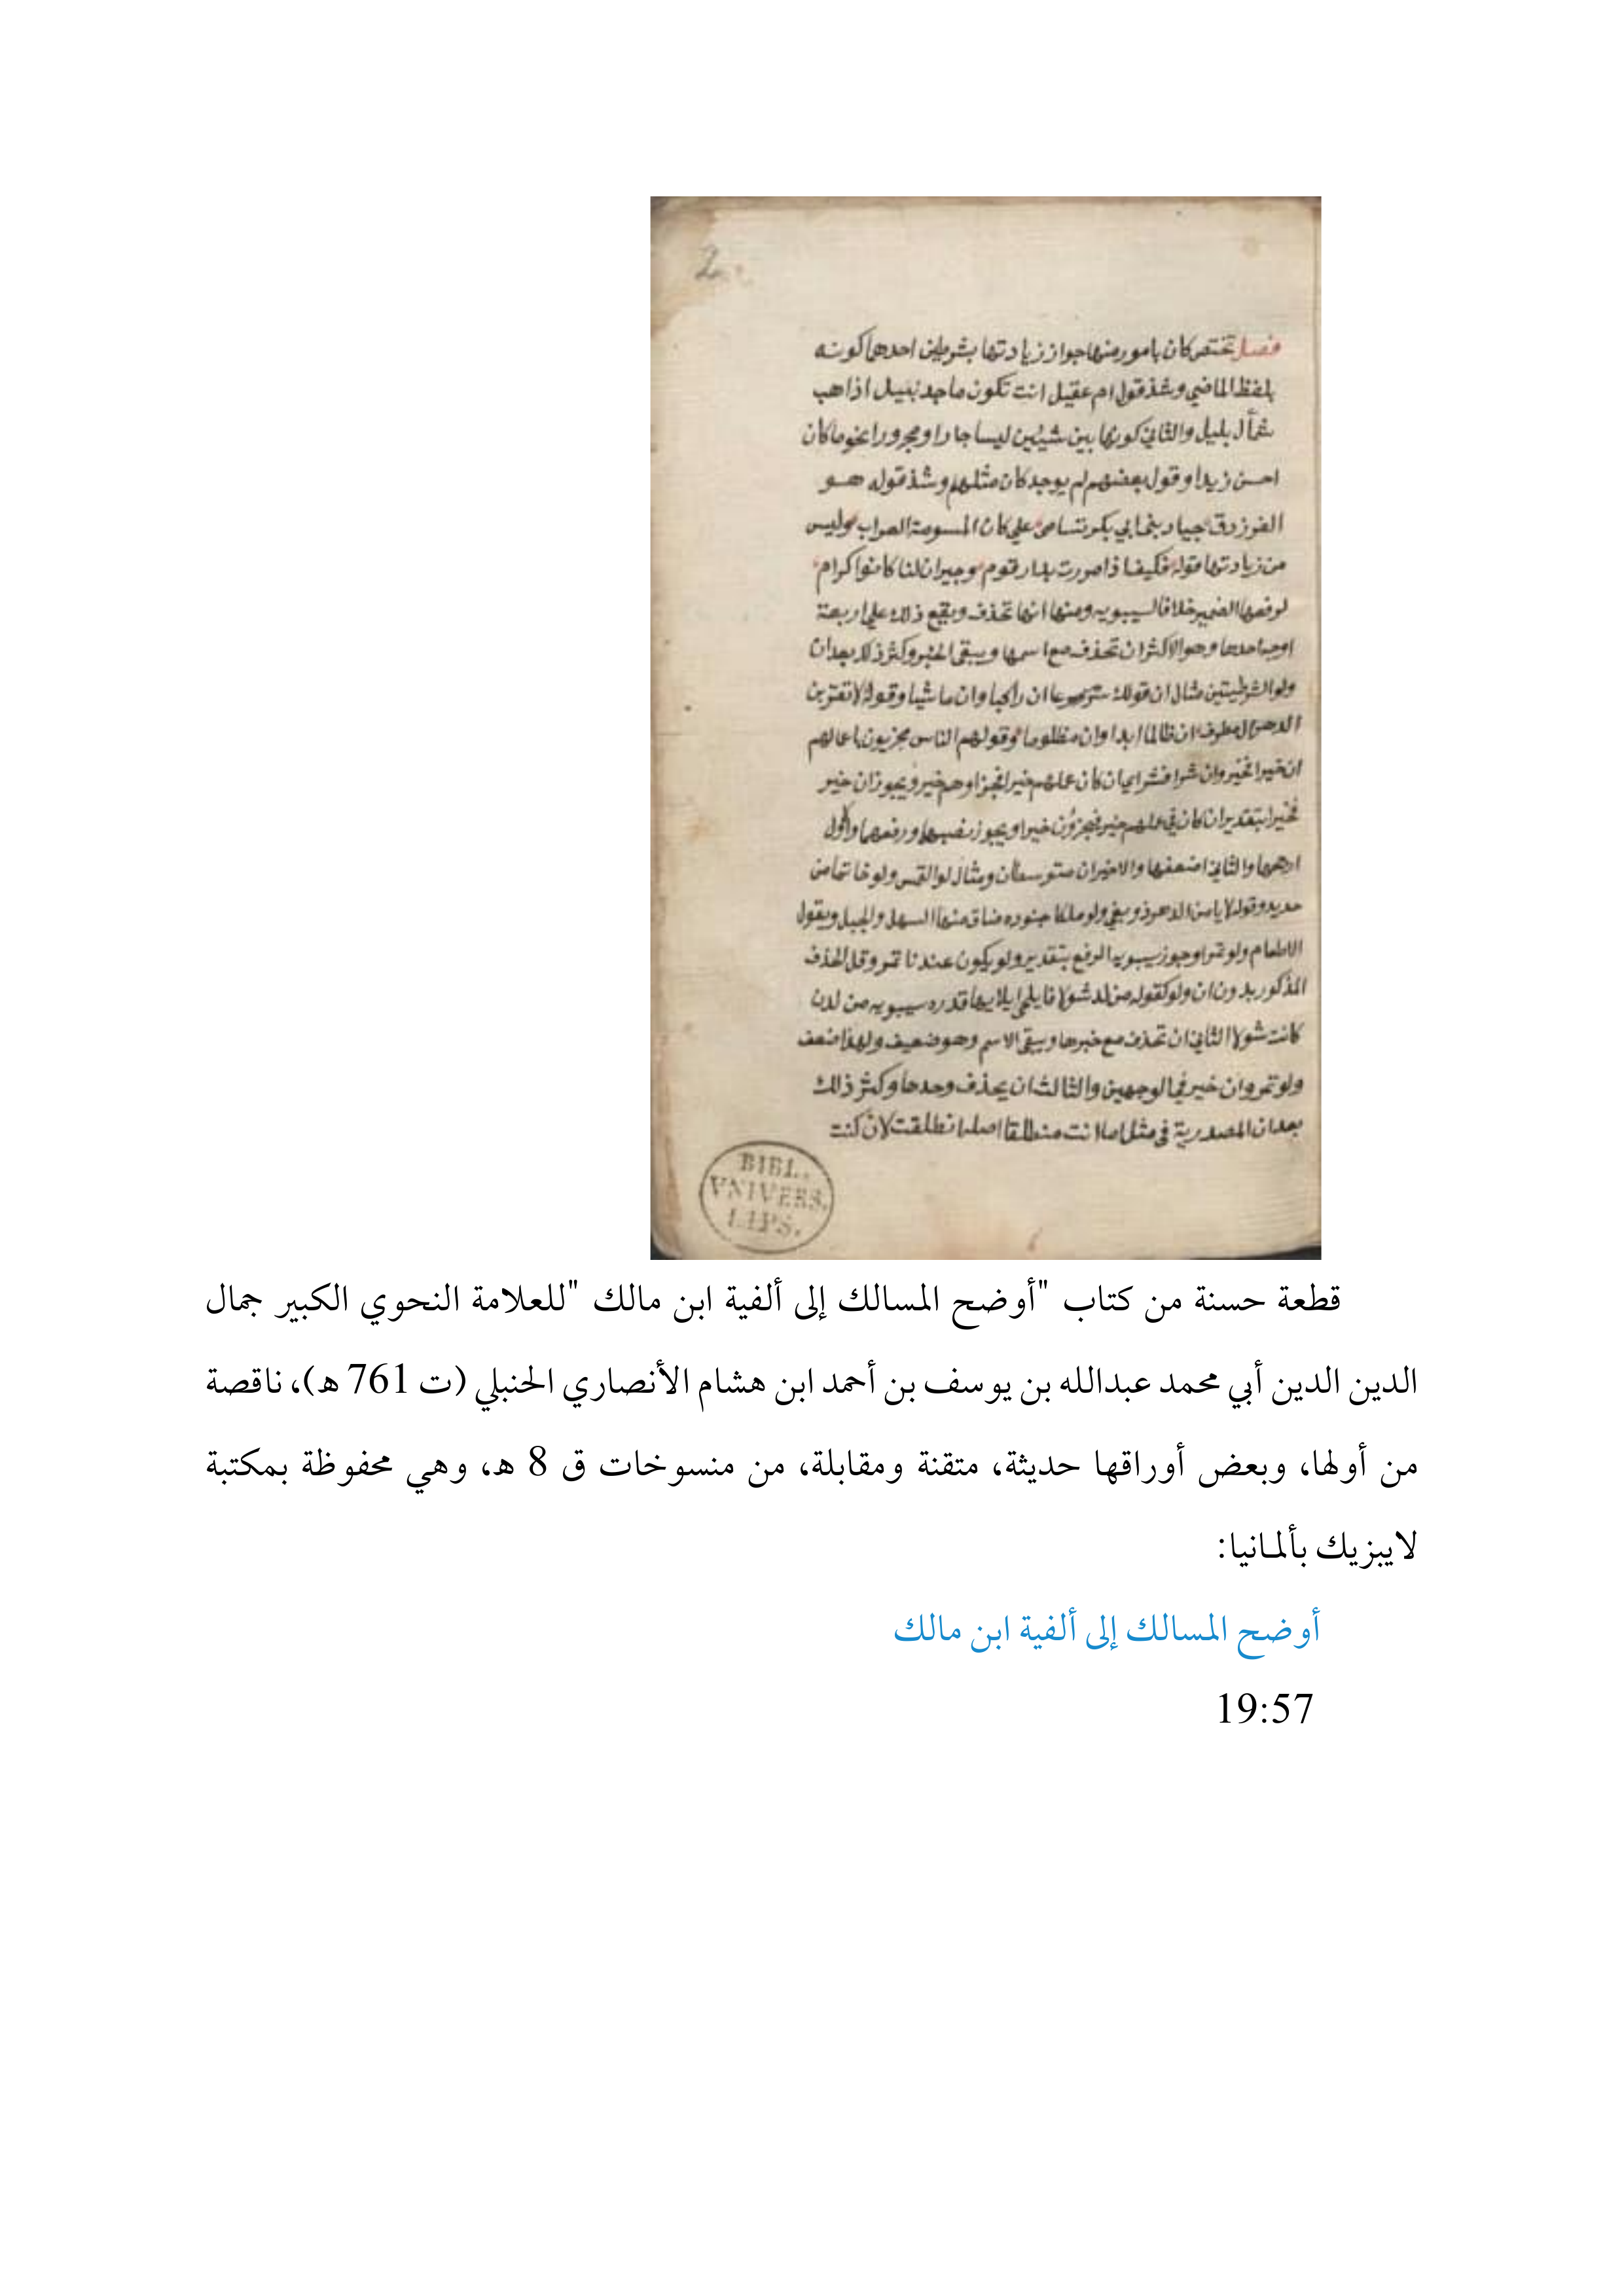 2
فصل تختص كان بامور منها جواز زيادتها بشرطين احدهما كونه
بلفظ الماضي وشذ قول ام عقيل انت تكون ماجد نبيل اذا هب
شمأل بليل والثاني كونها بين شيئين ليسا جارا ومجرورا نحو ما كان
احسن زيدا وقول بعضهم لم يوجد كان مثلهم وشذ قوله هو
الفرزدق جياد بني ابي بكر تسامى على كان المسومة العراب وليس
من زيادتها قوله فكيف اذا مررت بدار قوم وجيران لنا كانوا كرام
لرفعها الضمير خلافا لسيبويه ومنها انها تحذف ويقع ذلك على اربعة
اوجه احدها وهو الاكثر ان تحذف مع اسمها ويبقى الخبر وكثر ذلك بعد ان
ولو الشرطيتين مثال ان قولك سر مسرعا ان راكبا وان ماشيا وقوله لا تقربن
الدهر ال مطرف ان ظالما ابدا وان مظلوما وقولهم الناس مجزيون باعمالهم
ان خيرا فخير وان شرا فشر اي ان كان عملهم خيرا فجزاوهم خير ويجوز ان خير
فخيرا بتقدير ان كان في عملهم خير فيجزون خيرا ويجوز نصبهما ورفعهما والاول
ارجحها والثاني اضعفها والاخيران متوسطان ومثال لو التمس ولو خاتما من
حديد وقوله لا يامن الدهر ذو بغي ولو ملكا جنوده ضاق منها السهل والجبل ويقول
الاطعام ولو تمرا وجوز سيبويه الرفع بتقدير ولو يكون عندنا تمر وقل الحذف
المذكور بدون ان ولو كقوله من لد شولا فالى اتلايها قدره سيبويه من لدن
كانت شولا الثاني ان تحذف مع خبرها ويبقى الاسم وهو ضعيف ولهذا ضعف
ولو تمر وان خير في الوجهين والثالث ان يحذف وحدها وكثر ذلك
بعد ان المصدرية في مثل اما انت منطلقا اصله انطلقت لان كنت
BIBL.
VNIVERS.
LIPS.
قطعة حسنة من كتاب "أوضح المسالك إلى ألفية ابن مالك "للعلامة النحوي الكبير جمال
الدين الدين أبي محمد عبدالله بن يوسف بن أحمد ابن هشام الأنصاري الحنبلي (ت 761 ه)، ناقصة
من أولها، وبعض أوراقها حديثة، متقنة ومقابلة، من منسوخات ق 8 ه، وهي محفوظة بمكتبة
لايبزيك بألمانيا:
أوضح المسالك إلى ألفية ابن مالك
19:57